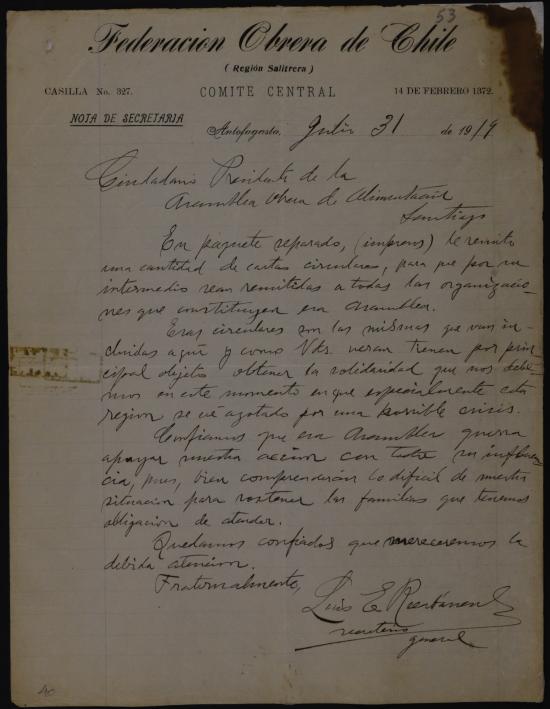 53
Federacion Obrera de Chile
( Región Salitrera )
CASILLA No. 327. COMITE CENTRAL 14 DE FEBRERO 1372.
NOTA DE SECRETARIA
Antofagasta, Julio 31 de 1919
Ciudadano Presidente de la
Asamblea Obrera de Alimentación
Santiago
En paquete separado, (impreso) le remito
una cantidad de cartas circulares, para que por su
intermedio sean remitidas a todas las organizacio-
nes que constituyen esa Asamblea.
Esas circulares son las mismas que van in-
cluidas aquí y como Vds. veran tienen por prin-
cipal objeto obtener la solidaridad que nos debe-
mos en este momento en que especialmente esta
region se vé azotada por una horrible crisis.
Confiamos que esa Asamblea querra
apoyar nuestra accion con toda su influen-
cia, pues, bien comprenderán lo dificil de nuestra
situacion para sostener las familias que tenemos
obligacion de atender.
Quedamos confiados que mereceremos la
debida atencion.
Fraternalmente,
Luis E Recabarren S
secretario
general